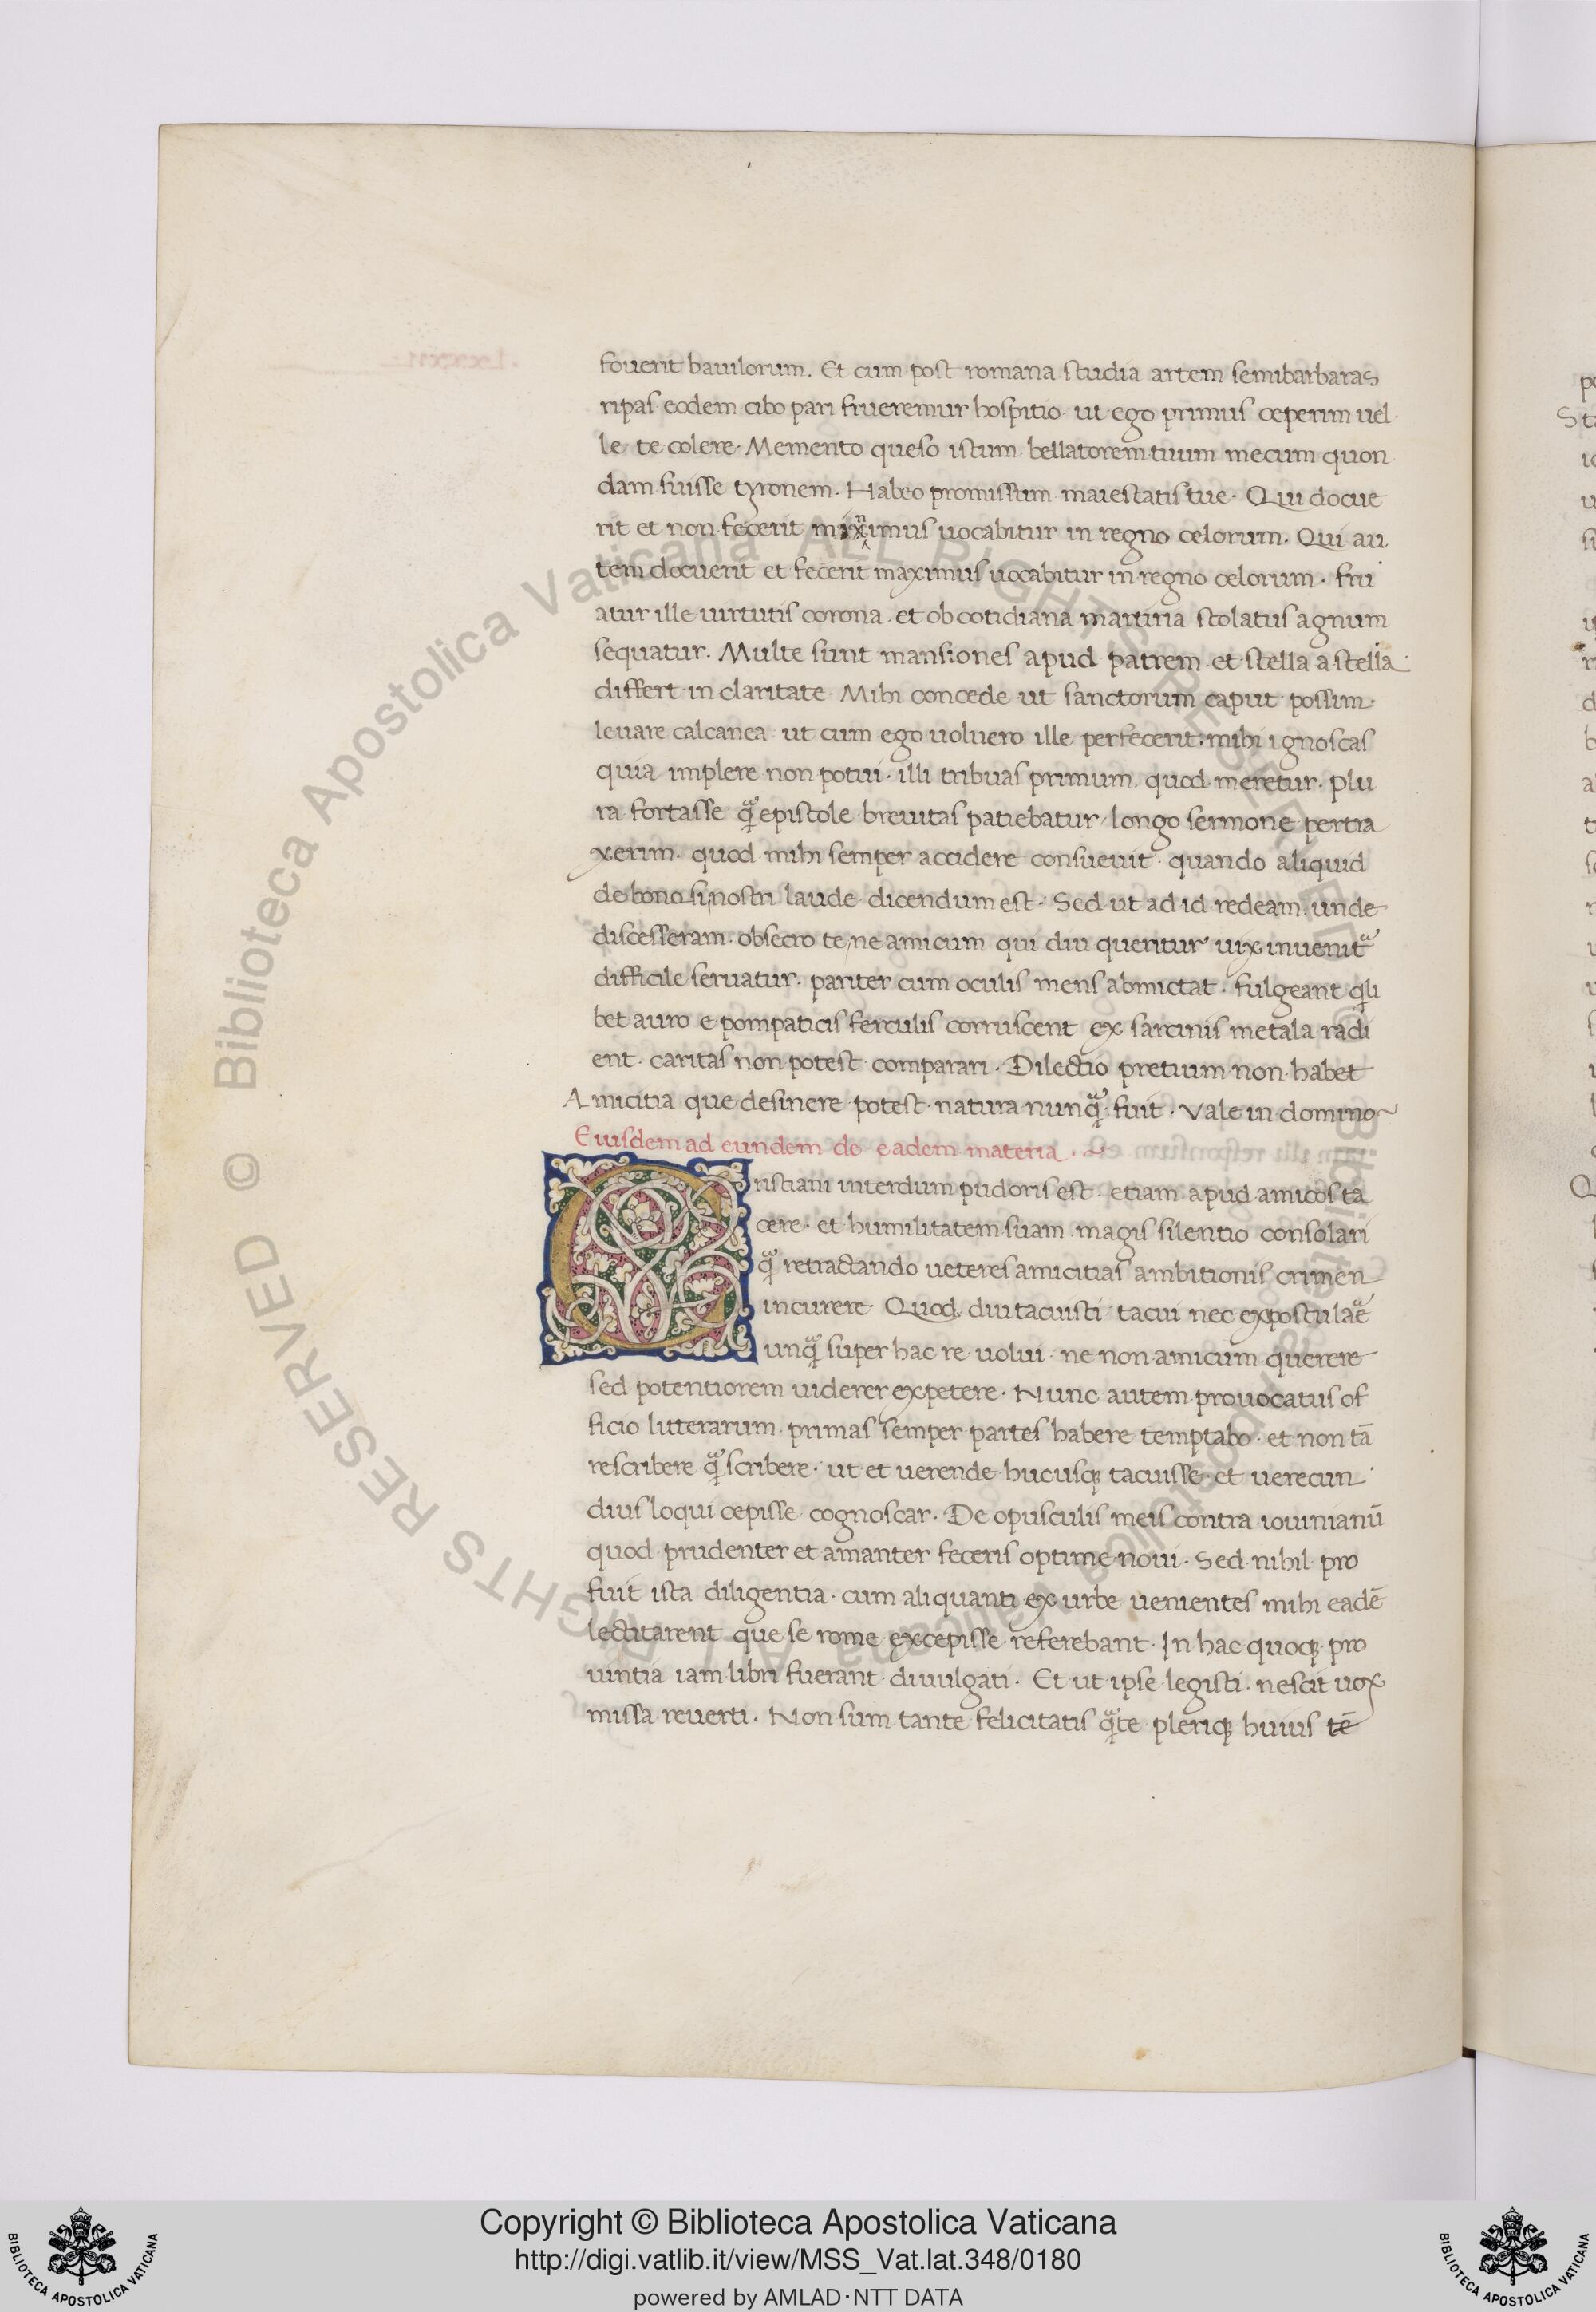 fouerit bauilorum. Et cum post romana studia artem semibarbaras
ripas eodem cibo pari frueremur hospitio· ut ego primus ceperim uel
le te colere· Memento queso istum bellatorem tuum mecum quon
dam fuisse tyronem. Habeo promissum maiestatis tue· Qui docue
rit et non fecerit minimus uocabitur in regno celorum. Qui au
tem docuerit et fecerit maximus uocabitur in regno celorum· fru
atur ille uirtutis corona· et ob cotidiana martiria stolatus agnum
sequatur. Multe sunt mansiones apud patrem et stella a stella
differt in claritate· Mihi concede ut sanctorum caput possim
leuare calcanea· ut cum ego uoluero ille perfecerit· mihi ignoscas
quia implere non potui· illi tribuas primum quod meretur. plu
ra fortasse qᷓ epistole breuitas patiebatur longo sermone pertra
xerim· quod mihi semper accidere consueuit· quando aliquid
de bonosi nostri laude dicendum est· Sed ut ad id redeam unde
discesseram· obsecro te ne amicum qui diu queritur uix inuenitᷓ
difficile seruatur· pariter cum oculis mens abmictat· fulgeant qli
bet auro e pompaticis ferculis corruscent ex sarcinis metala radi
ent· caritas non potest comparari· Dilectio pretium non habet
Amicitia que desinere potest natura nunqᷓ fuit· Vale in domino
Eiusdem ad eundem de eadem materia·
C ristiani interdum pudoris est etiam apud amicos ta
cere· et humilitatem suam magis silentio consolari
qᷓ retractando ueteres amicitias ambitionis crimen
incurere Quod diu tacuisti tacui nec expostulaᷓe
unqᷓ super hac re uolui· ne non amicum querere
sed potentiorem uiderer expetere· Nunc autem prouocatus of
ficio litterarum· primas semper partes habere temptabo· et non tā
rescribere qᷓ scribere· ut et uerende hucusq; tacuisse· et uerecun
dius loqui cepisse cognoscar· De opusculis meis contra iouinianū
quod prudenter et amanter feceris optime noui· Sed nihil pro
fuit ista diligentia· cum aliquanti ex urbe uenientes mihi eadē
lectitarent que se rome excepisse referebant· In hac quoq; pro
uintia iam libri fuerant diuulgati· Et ut ipse legisti· nescit uox
missa reuerti· Non sum tante felicitatis qᷓte pleriq; huius tē
Copyright © Biblioteca Apostolica Vaticana
http://digi.vatlib.it/view/MSS_Vat.lat.348/0180
powered by AMLAD·NTT DATA